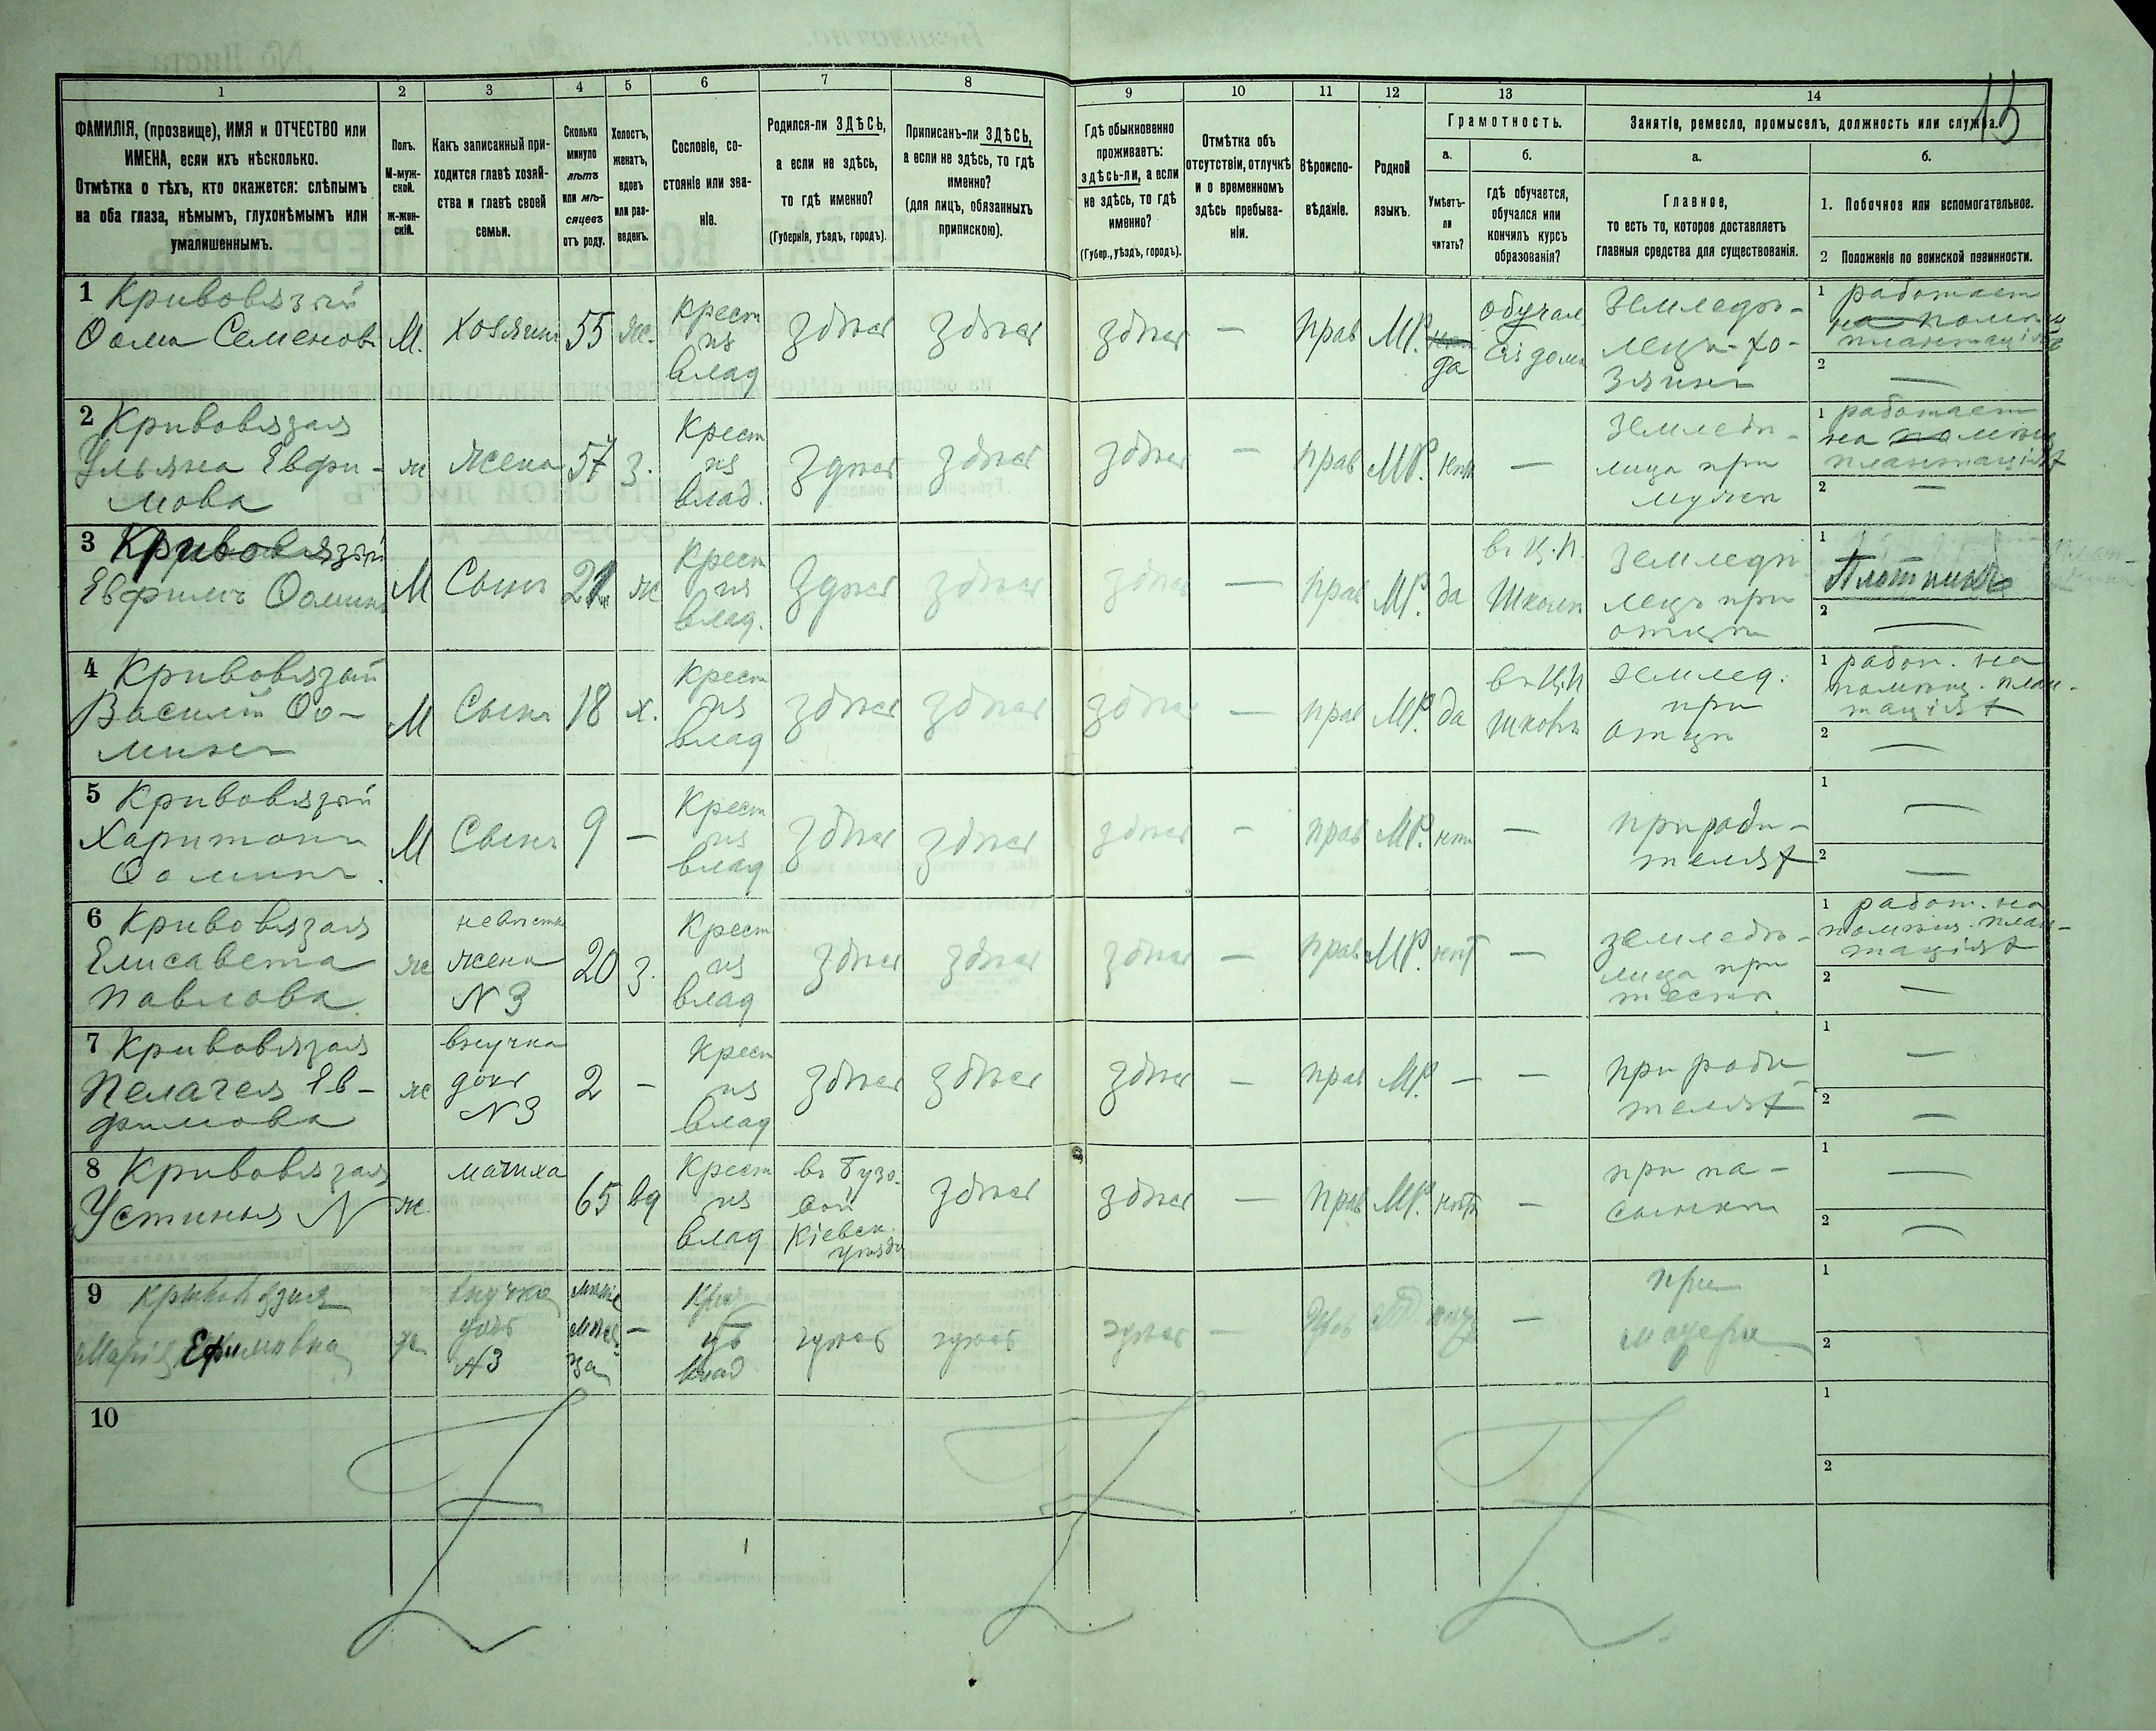 1 2 3 4 5 6 7 8 9 10 11 12 13 14
15
ФАМИЛІЯ, (прозвище), ИМЯ и ОТЧЕСТВО или
ИМЕНА, если ихъ нѣсколько.
Отмѣтка о тѣхъ, кто окажется: слѣпымъ
на оба глаза, нѣмымъ, глухонѣмымъ или
умалишеннымъ.
Полъ.
М-муж-
ской.
ж-жен-
скій.
Какъ записанный при-
ходится главѣ хозяй-
ства и главѣ своей
семьи.
Сколько
минуло
лѣтъ
или мѣ-
сяцевъ
отъ роду.
Холостъ,
женатъ,
вдовъ
или раз-
веденъ.
Сословіе, со-
стояніе или зва-
ніе.
Родился-ли ЗДѢСЬ,
а если не здѣсь,
то гдѣ именно?
(Губернія, уѣздъ, городъ).
Приписанъ-ли ЗДѢСЬ,
а если не здѣсь, то гдѣ
именно?
(для лицъ, обязанныхъ
припискою).
Гдѣ обыкновенно
проживаетъ:
здѣсь-ли, а если
не здѣсь, то гдѣ
именно?
(Губер., уѣздъ, городъ).
Отмѣтка объ
отсутствіи, отлучкѣ
и о временномъ
здѣсь пребыва-
ніи.
Вѣроиспо-
вѣданіе.
Родной
языкъ.
Грамотность.
а.
Умѣетъ-
ли
читать?
б.
гдѣ обучается,
обучался или
кончилъ курсъ
образованія?
Занятіе, ремесло, промыселъ, должность или служба.
а.
Главное,
то есть то, которое доставляетъ
главныя средства для существованія.
б.
1. Побочное или вспомогательное.
2 Положеніе по воинской повинности.
1 Кривовязый
Ѳома Семеновъ
М.
хозяинъ
55
ж.
крест
из
влад
здѣсь
здѣсь
здѣсь
—
прав
МР.
да
обучал
дома
Земледѣ-
лецъ-хо-
зяинъ
1 работает
на
плантаціях
2 —
2 Кривовязая
Ульяна Евфи-
мова
ж
жена
57
з.
Крест
из
влад.
здѣсь
здѣсь
здѣсь
—
прав
МР.
нѣт
—
Земледѣ-
лица при
мужѣ
1 работает
на
плантаціях
2 —
3 Кривовязый
Евфимъ Ѳоминъ
М
Сынъ
21
ж
Крест
из
влад.
здѣсь
здѣсь
здѣсь
—
прав
МР.
да
въ Ц.П.
Школѣ
Земледѣ-
лецъ при
отцѣ
1 Плотникъ
2 —
4 Кривовязый
Василій Ѳо-
минъ
М
Сынъ
18
х.
Крест
из
влад
здѣсь
здѣсь
здѣсь
—
прав
МР.
да
въ Ц.П
школѣ
землед.
при
отцѣ
1 работ. на
помѣщ. план-
таціях
2 —
5 Кривовязый
Харитонъ
Ѳоминъ.
М
Сынъ
9
—
Крест
из
влад
здѣсь
здѣсь
здѣсь
—
прав
МР.
нѣт
—
при роди-
телях
1 —
2 —
6 Кривовязая
Елисавета
Павлова
ж
невѣстка
жена
N 3
20
з.
Крест
из
влад
здѣсь
здѣсь
здѣсь
—
прав
МР.
нѣт
—
земледѣ-
лица при
тестѣ
1 работ. на
помѣщ. план-
таціях
2 —
7 Кривовязая
Пелагея Ев-
фимова
ж
внучка
доч
N 3
2
—
Крест
из
влад
здѣсь
здѣсь
здѣсь
—
прав
МР.
—
—
при роди-
телях
1 —
2 —
8 Кривовязая
Устинья N
ж.
мачиха
65
вд
Крест
из
влад
въ Бузо-
вой
Кіевск.
уѣзда
здѣсь
здѣсь
—
прав
МР.
нѣт
—
при па-
сынкѣ
1 —
2 —
9 Кривовязая
Марія Ефимовна
ж
внучка
доч
N3
—
Крес
из
влад
здѣсь
здѣсь
здѣсь
—
—
при
матери
1
2
10
1
2